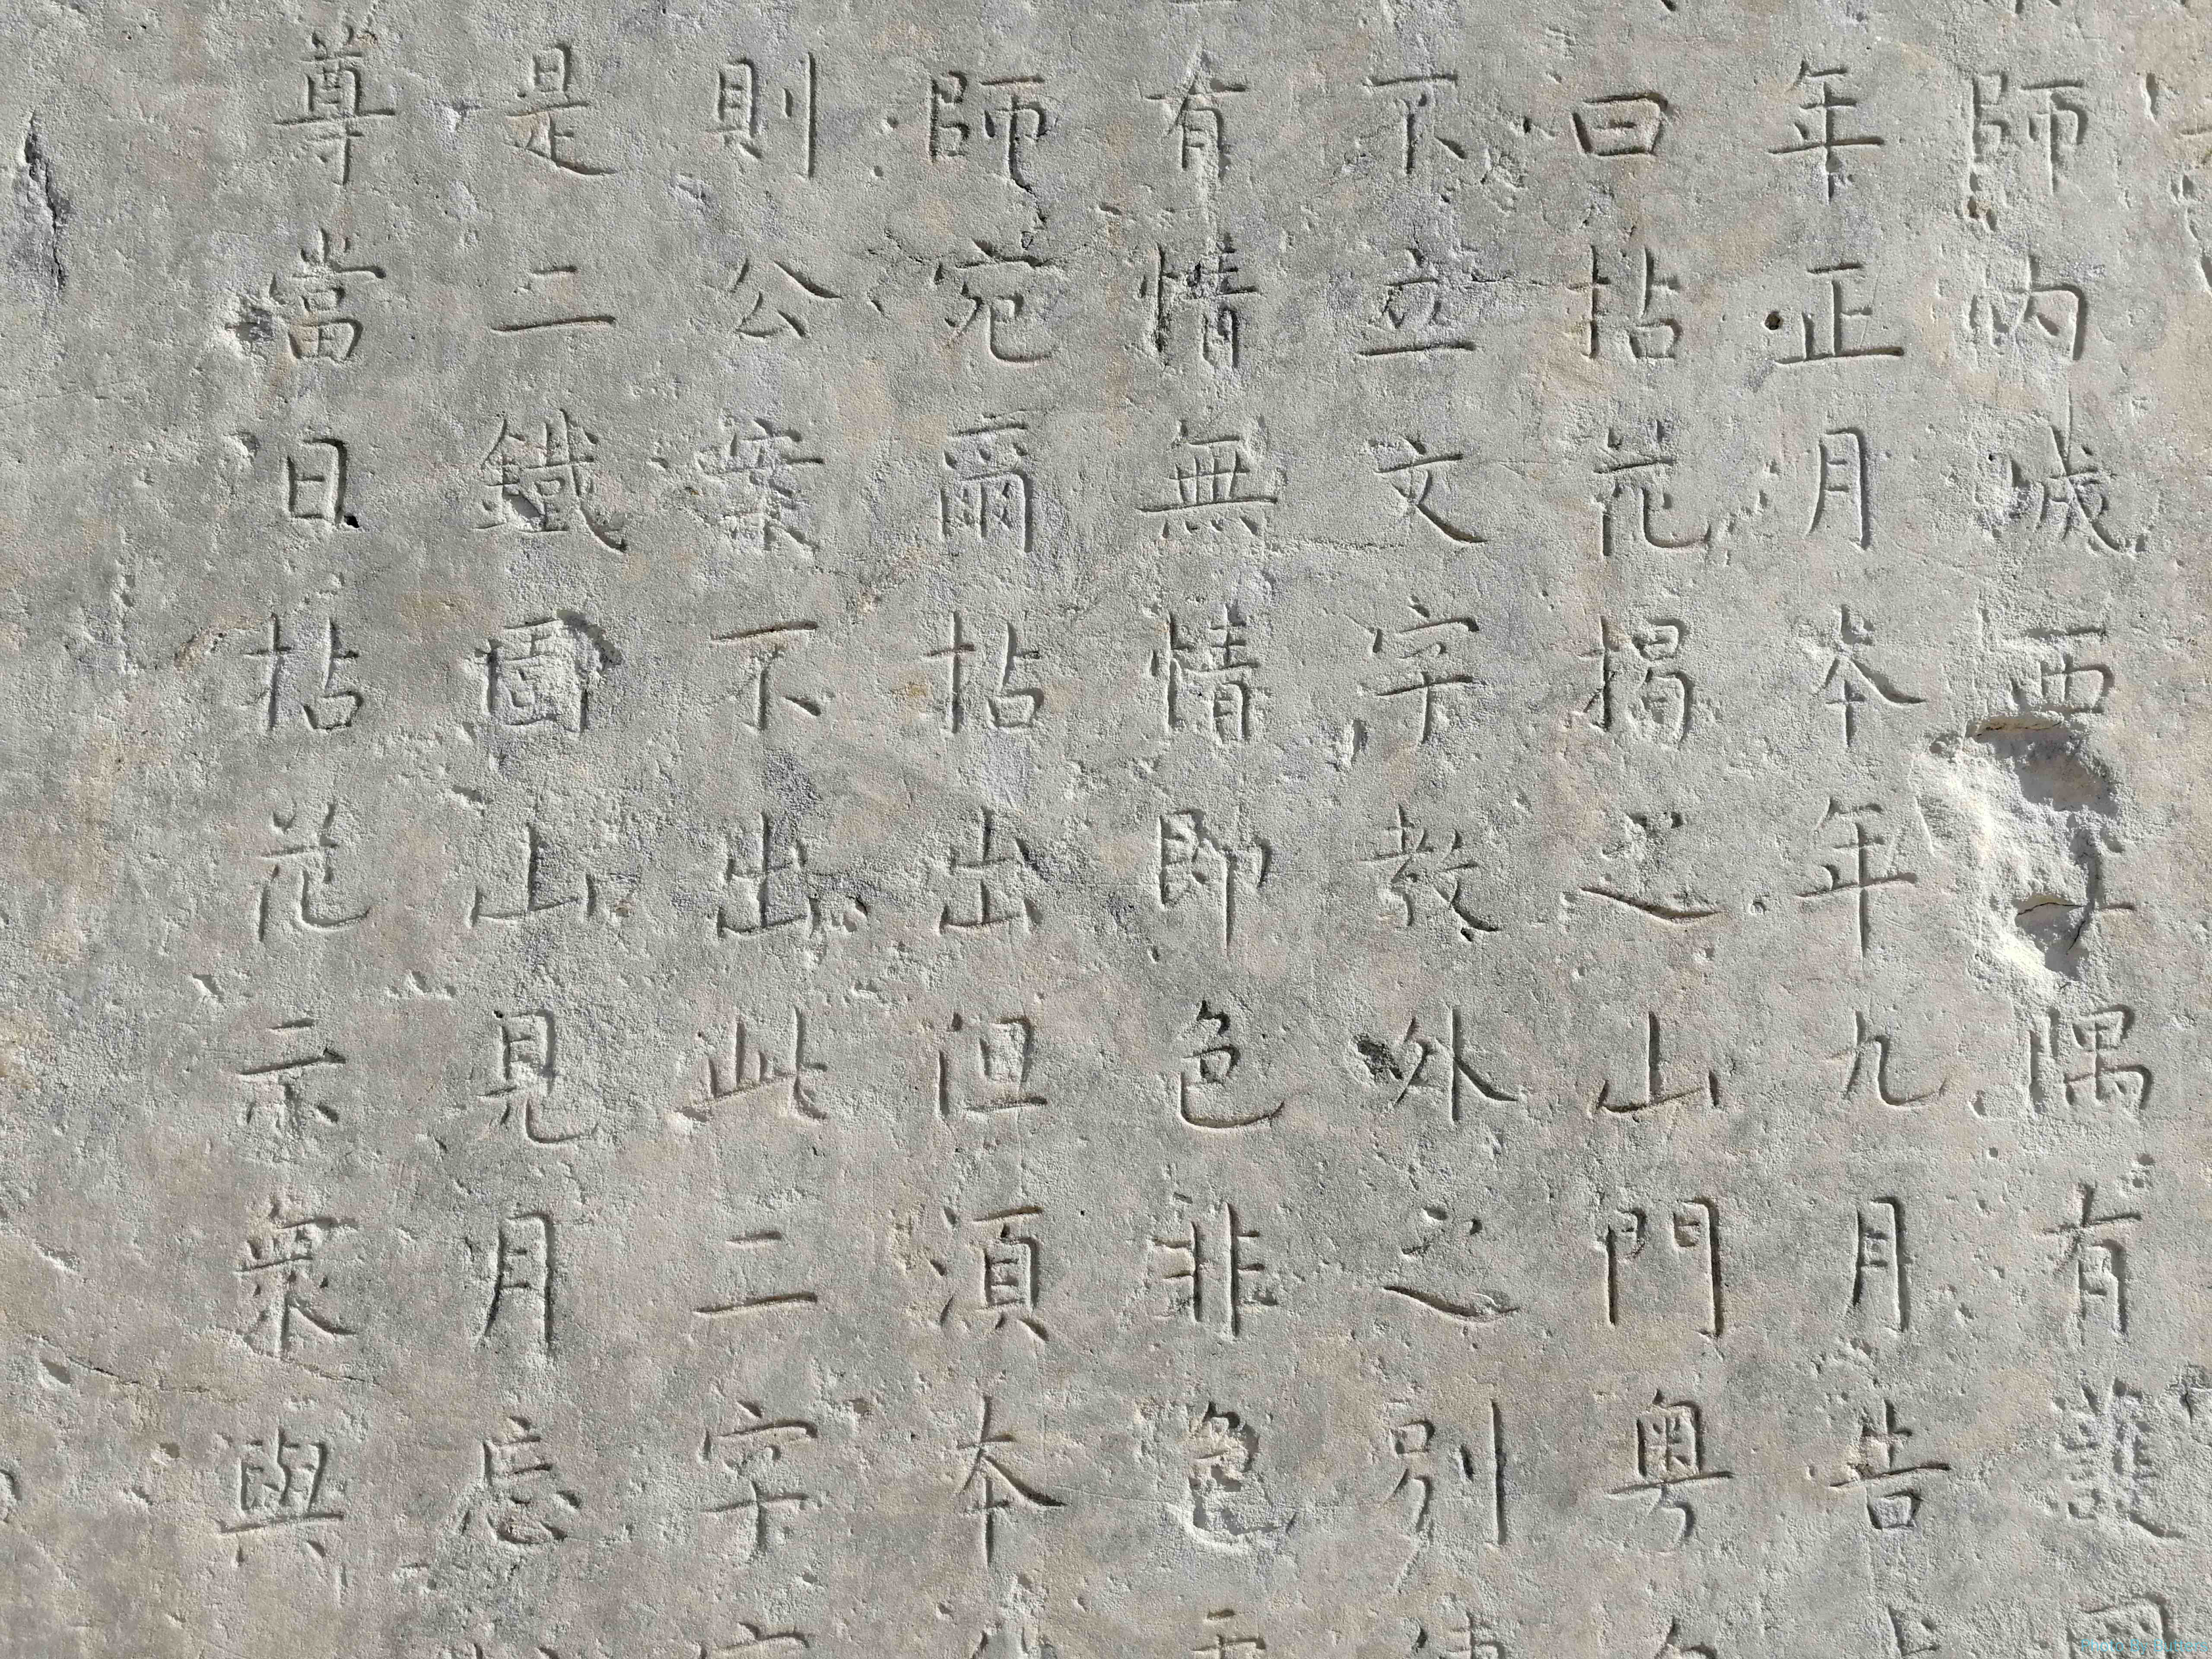 師內城西隅有護
年正月本年九月告
曰拈花揭之山門粵
不立文字教外之別
有情無情即色非色
師宛爾拈出但須本
則公案不出此二字
是二鐵圍山見月忘
尊當日拈花示衆與